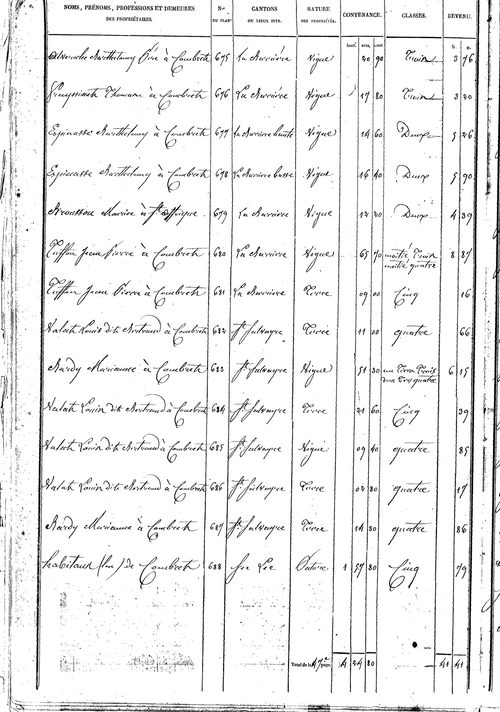 NOMS, PRÉNOMS, PROFESSIONS ET DEMEURES DES PROPRIÉTAIRES. Nos DU PLAN CANTONS OU LIEUX DITS. NATURE DES PROPRIÉTÉS. CONTENANCE. CLASSES. REVENU.
hect. ares. cent. fr. c.
Barthelemy à Combret 675 La Burrière Vigne 20 90 Trois 3 76
Thomas à Combret 676 La Burrière Vigne 17 80 Trois 3 20
Espinasse Barthelemy à Combret 677 La Burrière haute Vigne 14 60 Deux 5 26
Espinasse Barthelemy à Combret 678 La Burrière basse Vigne 16 40 Deux 5 90
Maurice à St affrique 679 La Burrière Vigne 12 20 Deux 4 39
Jean Pierre à Combret 680 La Burrière Vigne 65 70 moitié Trois moitié quatre 8 87
Jean Pierre à Combret 681 La Burrière Terre 09 00 Cinq 16
Louis dit Bertrand à Combret 682 St Salvayre Terre 11 00 quatre 66
Bardy Marianne à Combret 683 St Salvayre Vigne 51 30 un Tiers Trois deux tiers quatre 6 15
Louis dit Bertrand à Combret 684 St Salvayre Terre 21 60 Cinq 39
Louis dit Bertrand à Combret 685 St Salvayre Vigne 09 40 quatre 85
Louis dit Bertrand à Combret 686 St Salvayre Terre 02 80 quatre 17
Bardy Marianne à Combret 687 St Salvayre Terre 14 30 quatre 86
habitans (les) de Combret 688 Pature 1 57 80 Cinq 79
Total de la 47e page 4 24 80 41 41